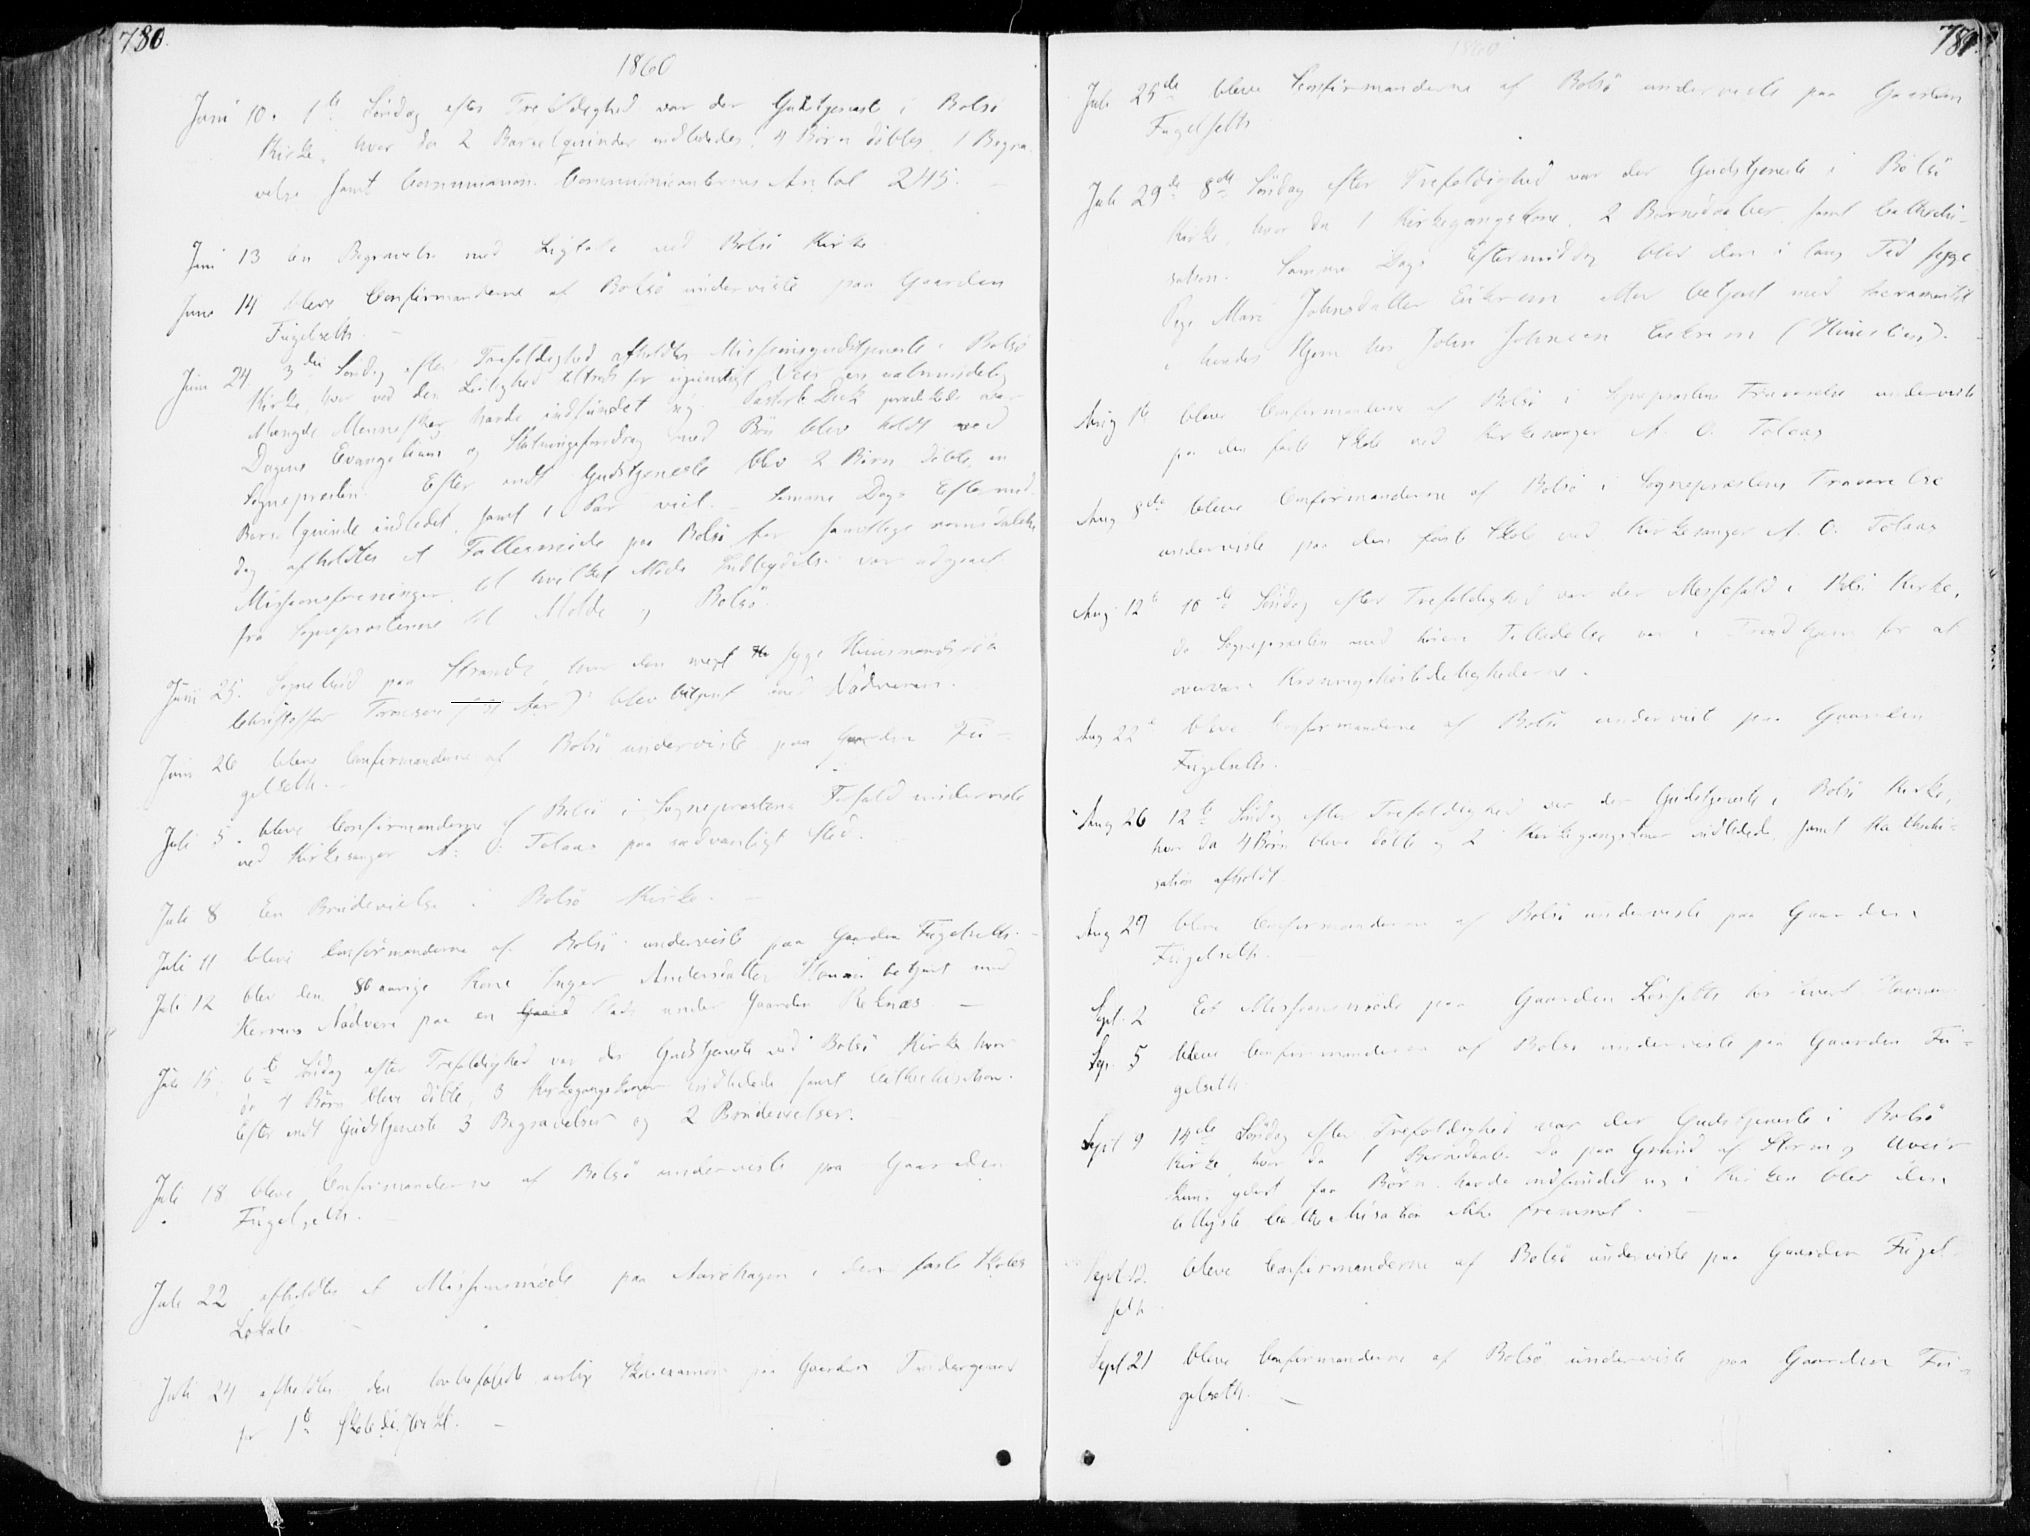 780.
1860
Juni 10. 1te Søndag efter Trefoldighed var der Gudstjeneste i Bolsö
Kirke, hvor da 2 Barselqvinder indlededes, 4 Börn döbtes, 1 Begra-
velse samt Communion. Communicanternes Antal 245. –
Juni 13 en Begravelse med Ligtale ved Bolsö Kirke
Juni 14 bleve Confirmanderne af Bolsö underviste paa Gaarden
Fugelseth. –
Juni 24 3die Søndag efter Trefoldighed afholdtes Missionsgudstjeneste i Bolsö
Kirke, hvor ved den Leilighed tiltrods for ugunstigt Veir en ualmindelig
Mængde Mennesker havde indfundet sig. prædikede over
Dagens Evangelium og Slutningsforedrag med Bön blev holdt ved
Sognepresten. Efter endt Gudstjeneste blev 2 Börn döbte, en
Barselqvinde indledet, samt 1 Par viet. – Samme Dags Eftermid-
dag afholdtes et Fællesmöde paa Bolsö for samtlige romsdalske
Missionsforeninger, til hvilket Möde Indbydelse var udgaaet
fra Sognepresterne til Molde og Bolsö.
Juni 25. Sognebud paa Strande, hvor den meget syge Huusmandssön
Christoffer Tronsen (31 Aar) blev betjent med Nadveren.
Juni 26 bleve Confirmanderne af Bolsö underviste paa Gaarden Fu-
gelseth. –
Juli 5. bleve Confirmanderne af Bolsö i Sogneprestens Forfald underviste
ved Kirkesanger A. O. Tolaas paa sædvanligt Sted.
Juli 8 En Brudevielse i Bolsö Kirke. –
Juli 11 bleve Confirmanderne af Bolsö underviste paa Gaarden Fugelseth. –
Juli 12 blev den 80 aarige Kone Inger Andersdatter betjent med
Herrens Nadvere paa en Gaard Plads under Gaarden Reknæs. –
Juli 15. 6te Søndag efter Trefoldighed var der Gudstjeneste ved Bolsö Kirke hvor
da 4 Börn bleve döbte, 3 Kirkegangskoner indledede samt Cathechisation.
Efter endt Gudstjeneste 3 Begravelser og 2 Brudevielser.
Juli 18 bleve Confirmanderne af Bolsö underviste paa Gaarden
Fugelseth. –
Juli 22 afholdtes et Missionsmöde paa i den faste Skoles
Lokale –
Juli 24 afholdtes den aarlig Skoleexamen paa Gaarden
for 1te Skoledistrikt. –
781.
1860
Juli 25de bleve Confirmanderne af Bolsö underviste paa Gaarden
Fugelseth
Juli 29de 8de Søndag efter Trefoldighed var der Gudstjeneste i Bolsö
Kirke, hvor da 1 Kirkegangskone, 2 Barnedaaber, samt Cathechi-
sation. Samme Dags Eftermiddag blev den i lang Tid syge
Pige Mari Johnsdatter Eikrem efter betjent med Sacramentet
i hendes Hjem hos John Johnsen Eikrem
Aug 1te bleve Confirmanderne af Bolsö i Sogneprestens Fraværelse underviste
paa den faste Skole ved Kirkesanger A. O. Tolaas
Aug 8de bleve Confirmanderne af Bolsö i Sogneprestens Fraværelse
underviste paa den faste Skole ved Kirkesanger A. O. Tolaas
Aug 12te 10de Søndag efter Trefoldighed var der Messefald i Bolsö Kirke,
da Sognepresten med höiere Tilladelse var i Trondhjem for at
overvære Kroningshöitidelighederne.
Aug 22de bleve Confirmanderne af Bolsö underviste paa Gaarden
Fugelseth.
Aug 26 12te Søndag efter Trefoldighed var der Gudstjeneste i Bolsö Kirke,
hvor da 4 Börn bleve döbte og 2 Kirkegangskoner indledede, samt Kathechi-
sation afholdt
Aug 29 bleve Confirmanderne af Bolsö underviste paa Gaarden
Fugelseth. –
Sept. 2 Et Missionsmöde paa Gaarden hos
Sep. 5 bleve Confirmanderne af Bolsö underviste paa Gaarden Fu-
gelseth
Sept 9 14de Søndag efter Trefoldighed var der Gudstjeneste i Bolsö
Kirke, hvor da 1 Barnedaab. Da paa Grund af Storm og Uveir
kun ydest faa Börn havde indfundet sig i Kirken blev den
tillyste Cathechisation ikke fremmet. –
Sept 12. bleve Confirmanderne af Bolsö underviste paa Gaarden Fugel-
seth
Sept 21 bleve Confirmanderne af Bolsö underviste paa Gaarden Fu-
gelseth. –